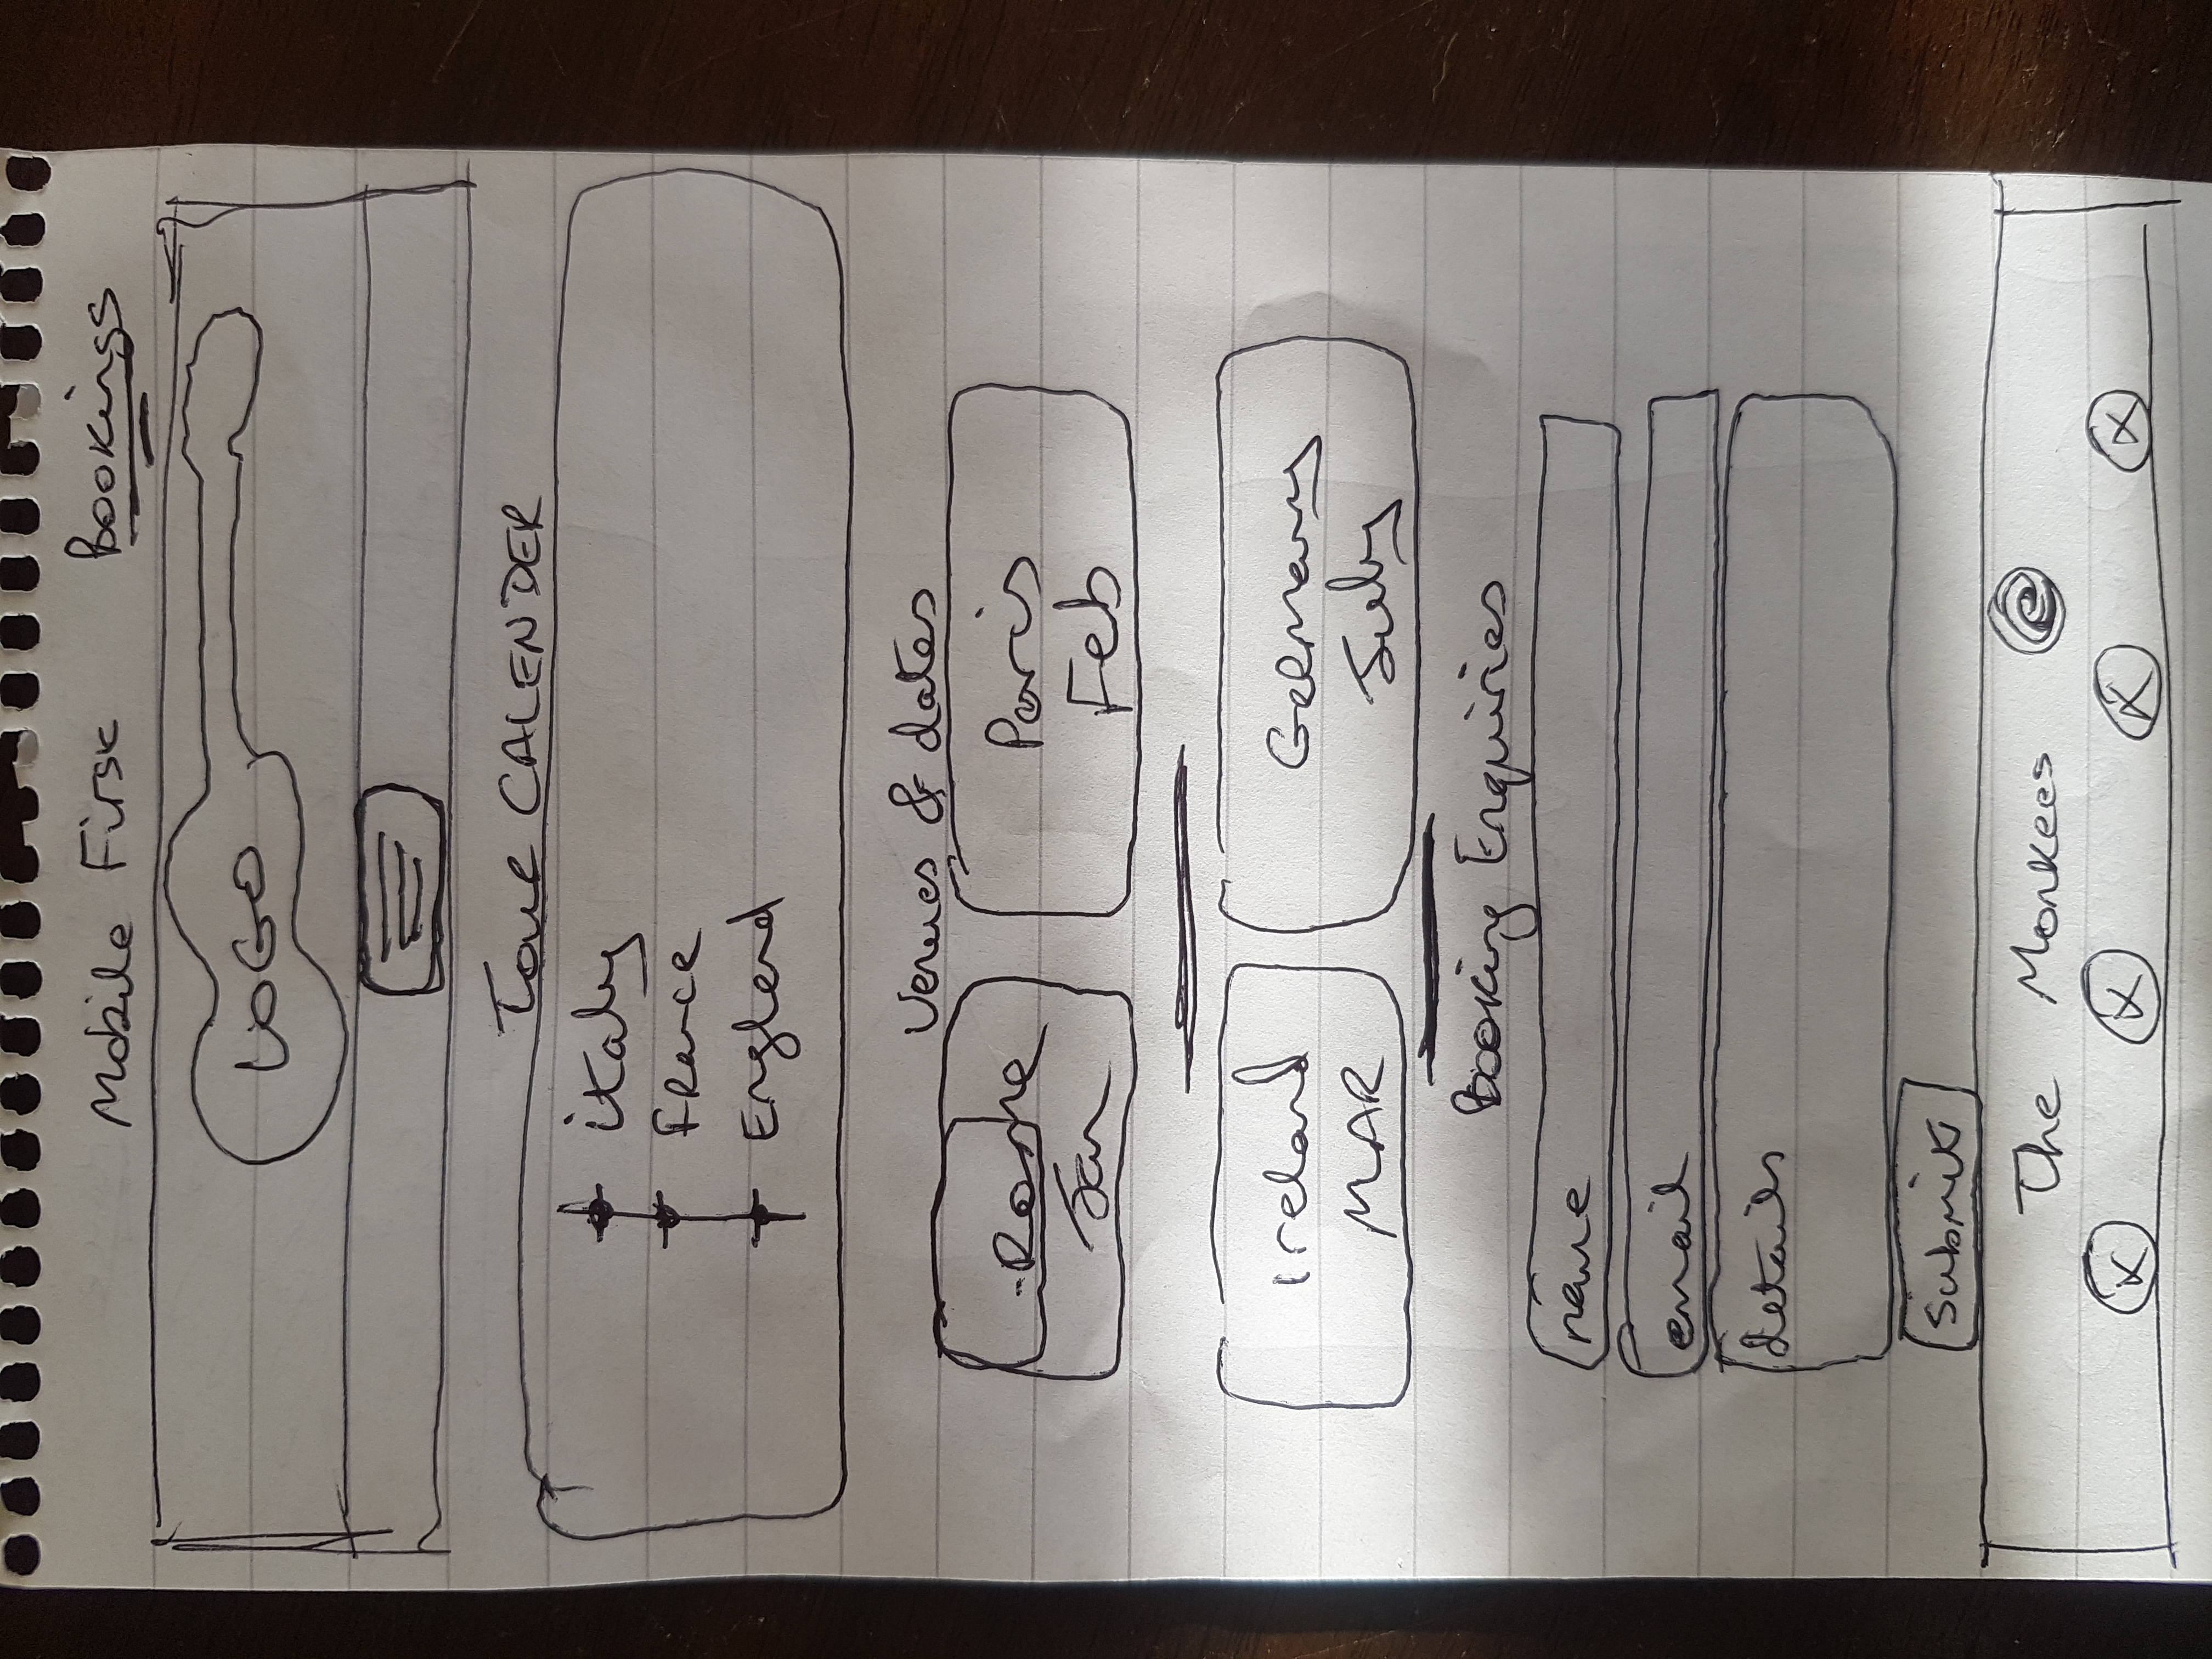 Mobile First Bookings
LOGO
Tour CALENDER
italy
France
England
Venues & dates
Rome
Jan
Paris
Feb
Ireland
MAR
Germany
July
Booking Enquiries
name
email
details
Submit
The Monkees ©
X X X X